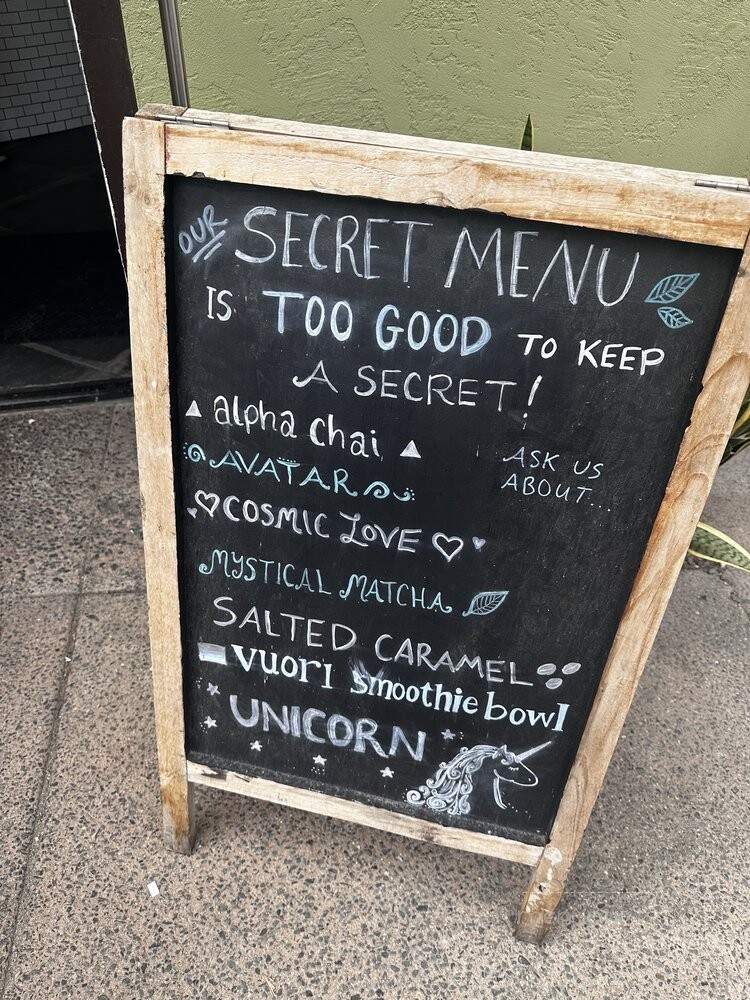 OUR SECRET MENU
IS TOO GOOD TO KEEP
A SECRET!
alpha chai
ASK US
ABOUT...
AVATAR
COSMIC LOVE
MYSTICAL MATCHA
SALTED CARAMEL
vuori smoothie bowl
UNICORN